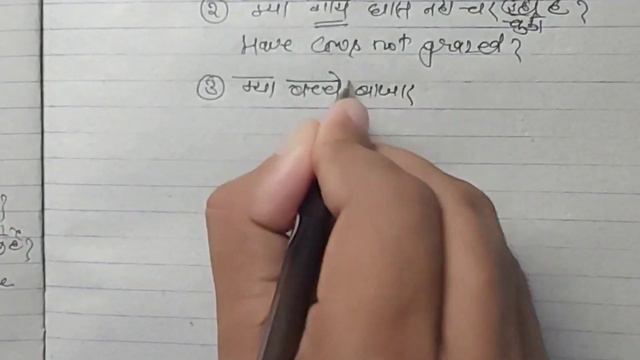 ② क्या गाय घास नहीं चर रही है ?
चुकी
Have cows not grazed ?
③ क्या बच्चे बाजार